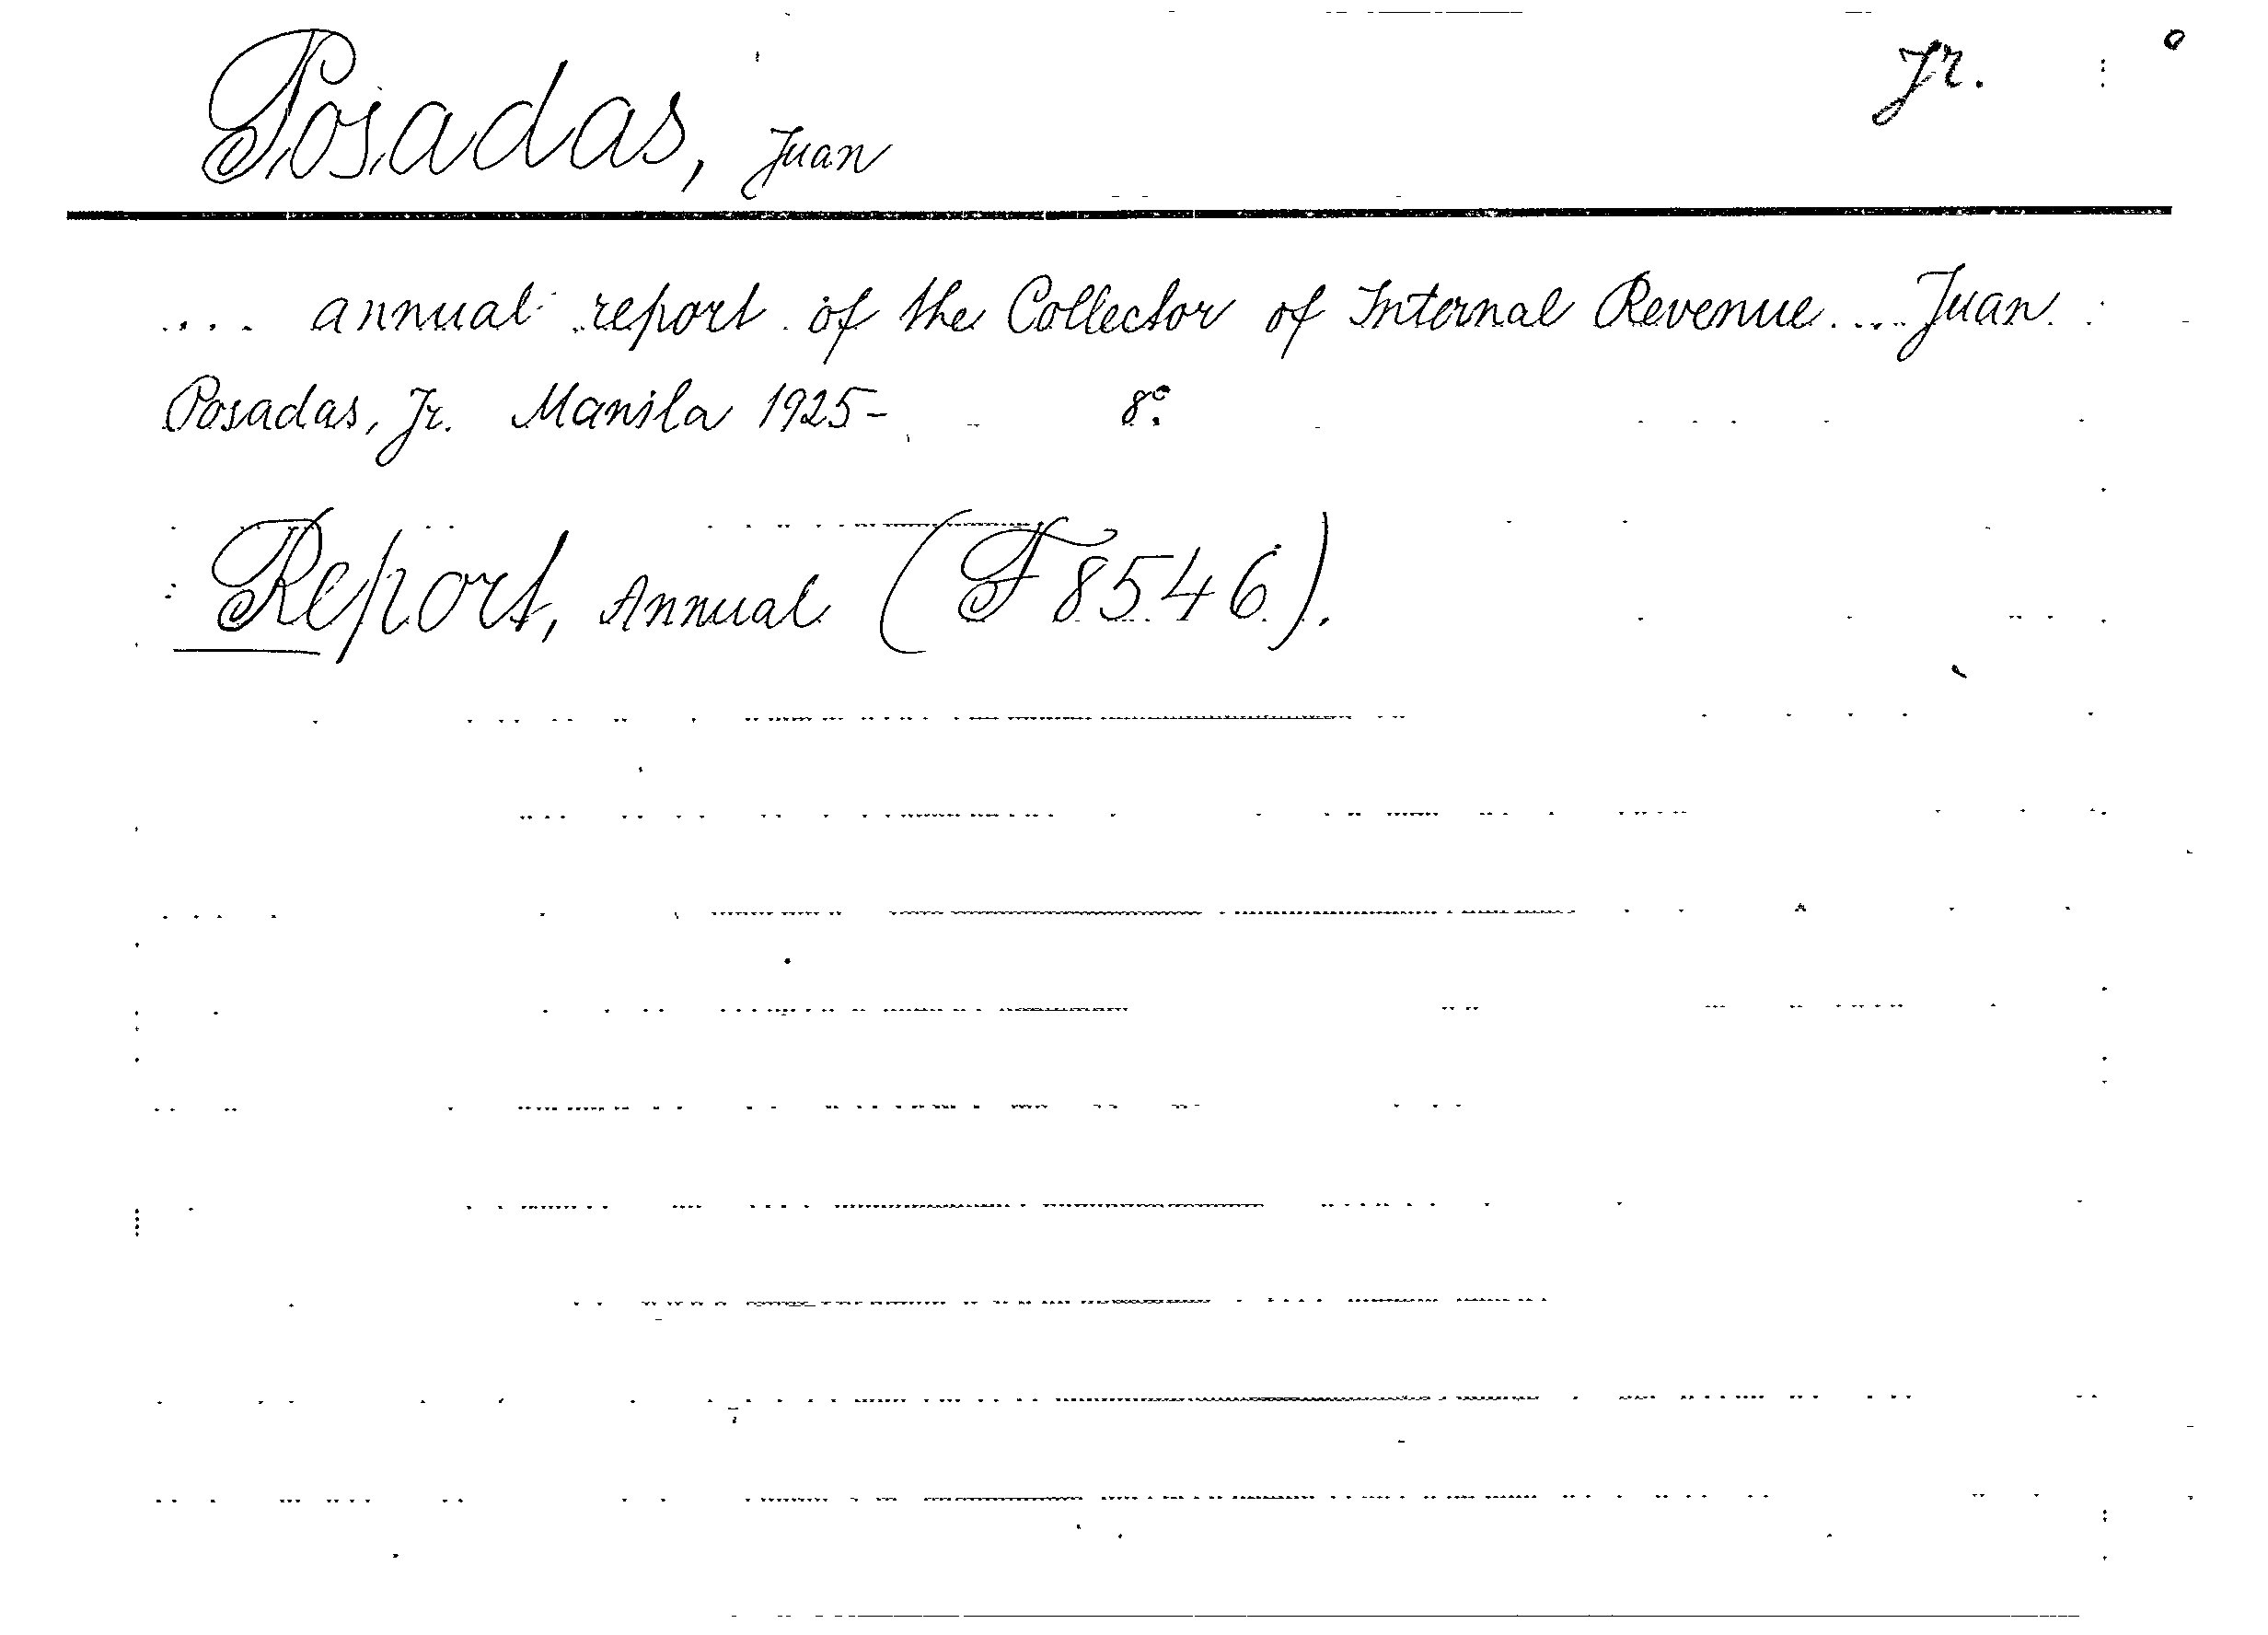 Posadas, Juan Jr.
.... annual report of the Collector of Internal Revenue.... Juan
Posadas, Jr. Manila 1925- 8º.
Report, Annual (F 8546).